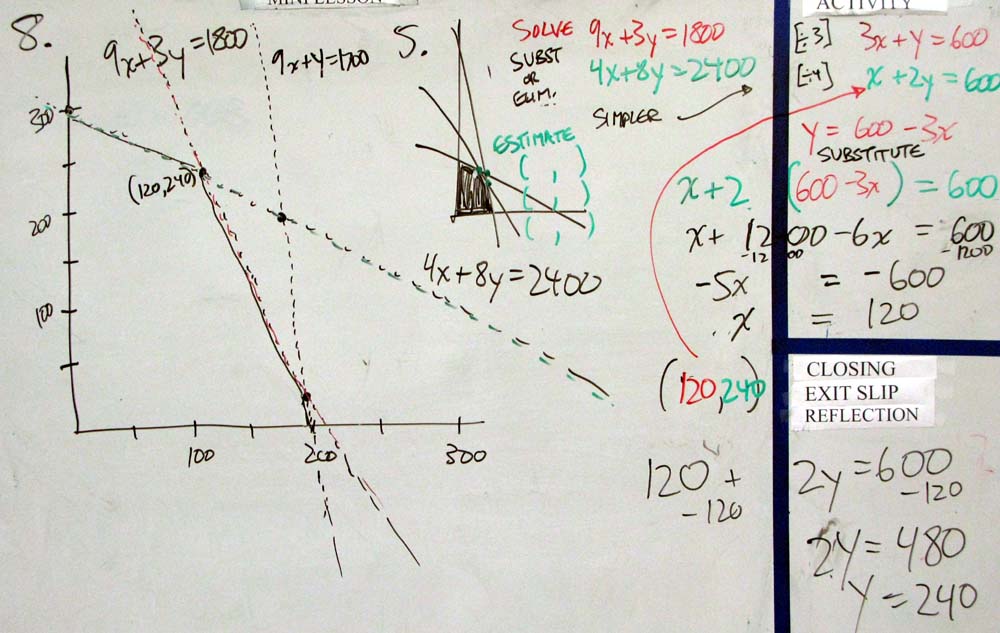 MINI LESSON
ACTIVITY
8.
9x+3y=1800
9x+y=1700
300
200
100
(120,240)
100
200
300
5.
SOLVE
SUBST
OR
ELIM.
9x+3y=1800
4x+8y=2400
SIMPLER
ESTIMATE
( , )
( , )
( , )
4x+8y=2400
[÷3] 3x+y=600
[÷4] x+2y=600
y=600-3x
SUBSTITUTE
x+2(600-3x)=600
x+1200-6x=600
-1200 -1200
-5x = -600
x = 120
(120,240)
CLOSING
EXIT SLIP
REFLECTION
120 + 2y=600
-120 -120
2y=480
y=240